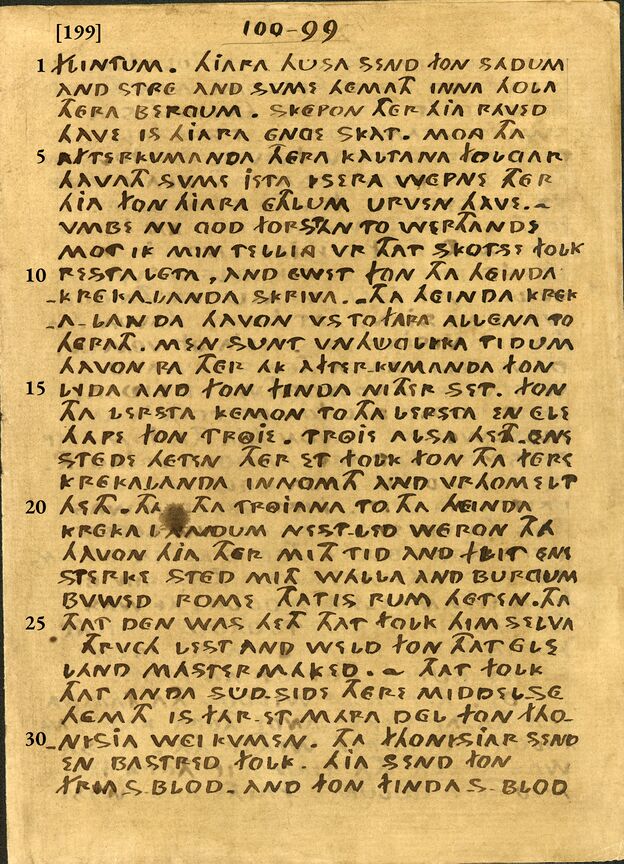 [199] 100-99
1 FLINTUM. HIARA HUSA SEND FON SADUM
AND STRE AND SVME HEMATH INNA HOLA
THERA BERGUM. SKEPON THER HIA RAVED
HAVE IS HIARA ENGE SKAT. MOG THA
5 AFTERKVMANDA THERA KALTANA FOLGIAR
HAVATH SVME ISTA YSERA WEPNE THER
HIA FON HIARA ETHLUM URVEN HAVE.
VMBE NV GOD FORSTAN TO WERTHANDE
MOT IK MIN TELLIA VR THAT SKOTSE FOLK
10 RESTA LETA, AND EWET FON THA HEINDA
-KREKA-LANDA SKRIVA. THA HEINDA KREK
-A-LANDA HAVON VS TO FARA ALLENA TO
HERATH. MEN SUNT VNHWGLIKA TIDUM
HAVON RA THER AK AFTER-KVMANDA FON
15 LYDA AND FON FINDA NITHER SET. FON
THA LERSTA KEMON TO THA LERSTA EN ELE
HAPE FON TROIE. TROIE ALSA HETH-ENE
STEDE HETEN THER ET FOLK FON THA FERE
KREKALANDA INNOMTH AND VRHOMELT
20 HETH. THA THA TROIANA TO THA HEINDA
KREKALANDUM NEST-LED WERON THA
HAVON HIA THER MITH TID AND FLIT ENE
STERKE STED MITH WALLA AND BURGUM
BVWED ROME THAT IS RUM HETEN. THA
25 THAT DEN WAS HETH THAT FOLK HIM SELVA
THRVCH LEST AND WELD FON THAT ELE
LAND MASTER MAKED. THAT FOLK
THAT ANDA SUD-SIDE THERE MIDDELSE
HEMTH IS FAR-ET MARA DEL FON FHO-
30 -NISIA WEI KVMEN. THA FHONISIAR SEND
EN BASTRED FOLK. HIA SEND FON
FRYAS BLOD. AND FON FINDA S-BLOD